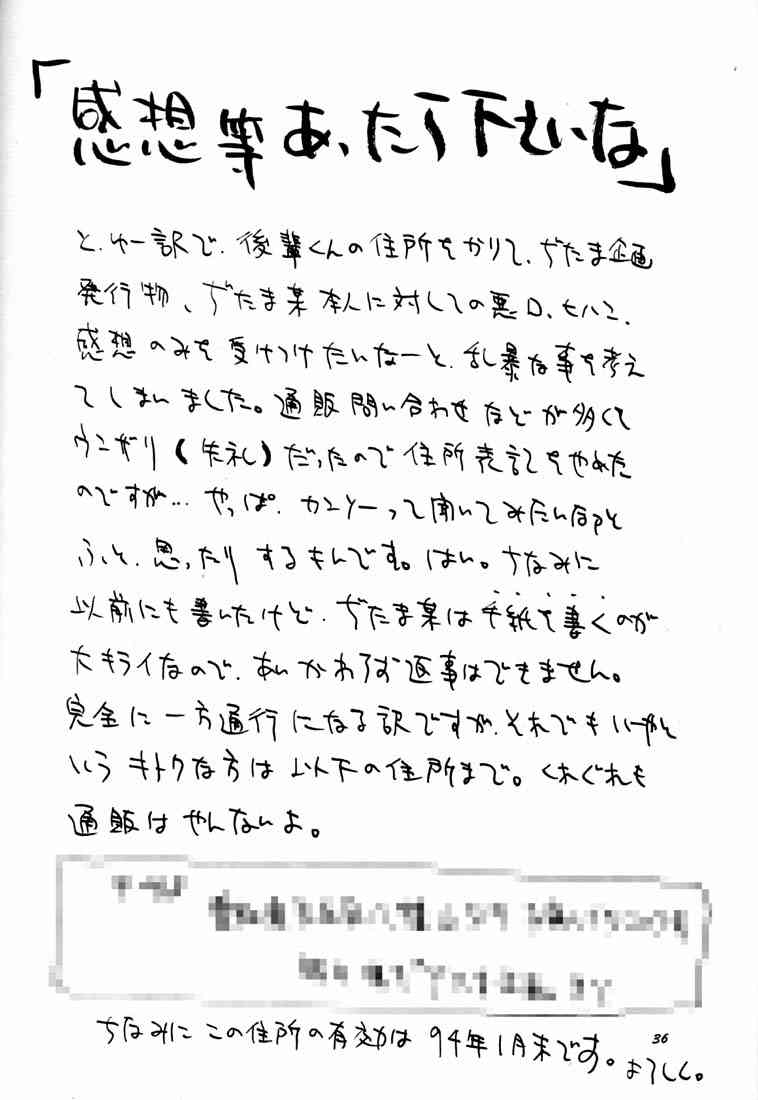 「感想等あったら下せいな」
と、ゆー訳で、後輩くんの住所をかりて、ぢたま企画
発行物、ぢたま某本人に対しての悪口、ヒハン、
感想のみを受けつけたいなーと、乱暴な事を考え
てしまいました。通販問い合わせなどが多くて
ウンザリ(失礼)だったので住所表記をやめた
のですが…やっぱ、カンソーって聞いてみたい
ふと、思ったりするもんです。はい。ちなみに
以前にも書いたけど、ぢたま某は手紙を書くのが
大キライなので、あいかわらず返事はできません。
完全に一方通行になる訳ですが、それでもいーやと
いうキトクな方は以下の住所まで。くれぐれも
通販はやんないよ。
ちなみにこの住所の有効は94年1月末です。よろしく。
36